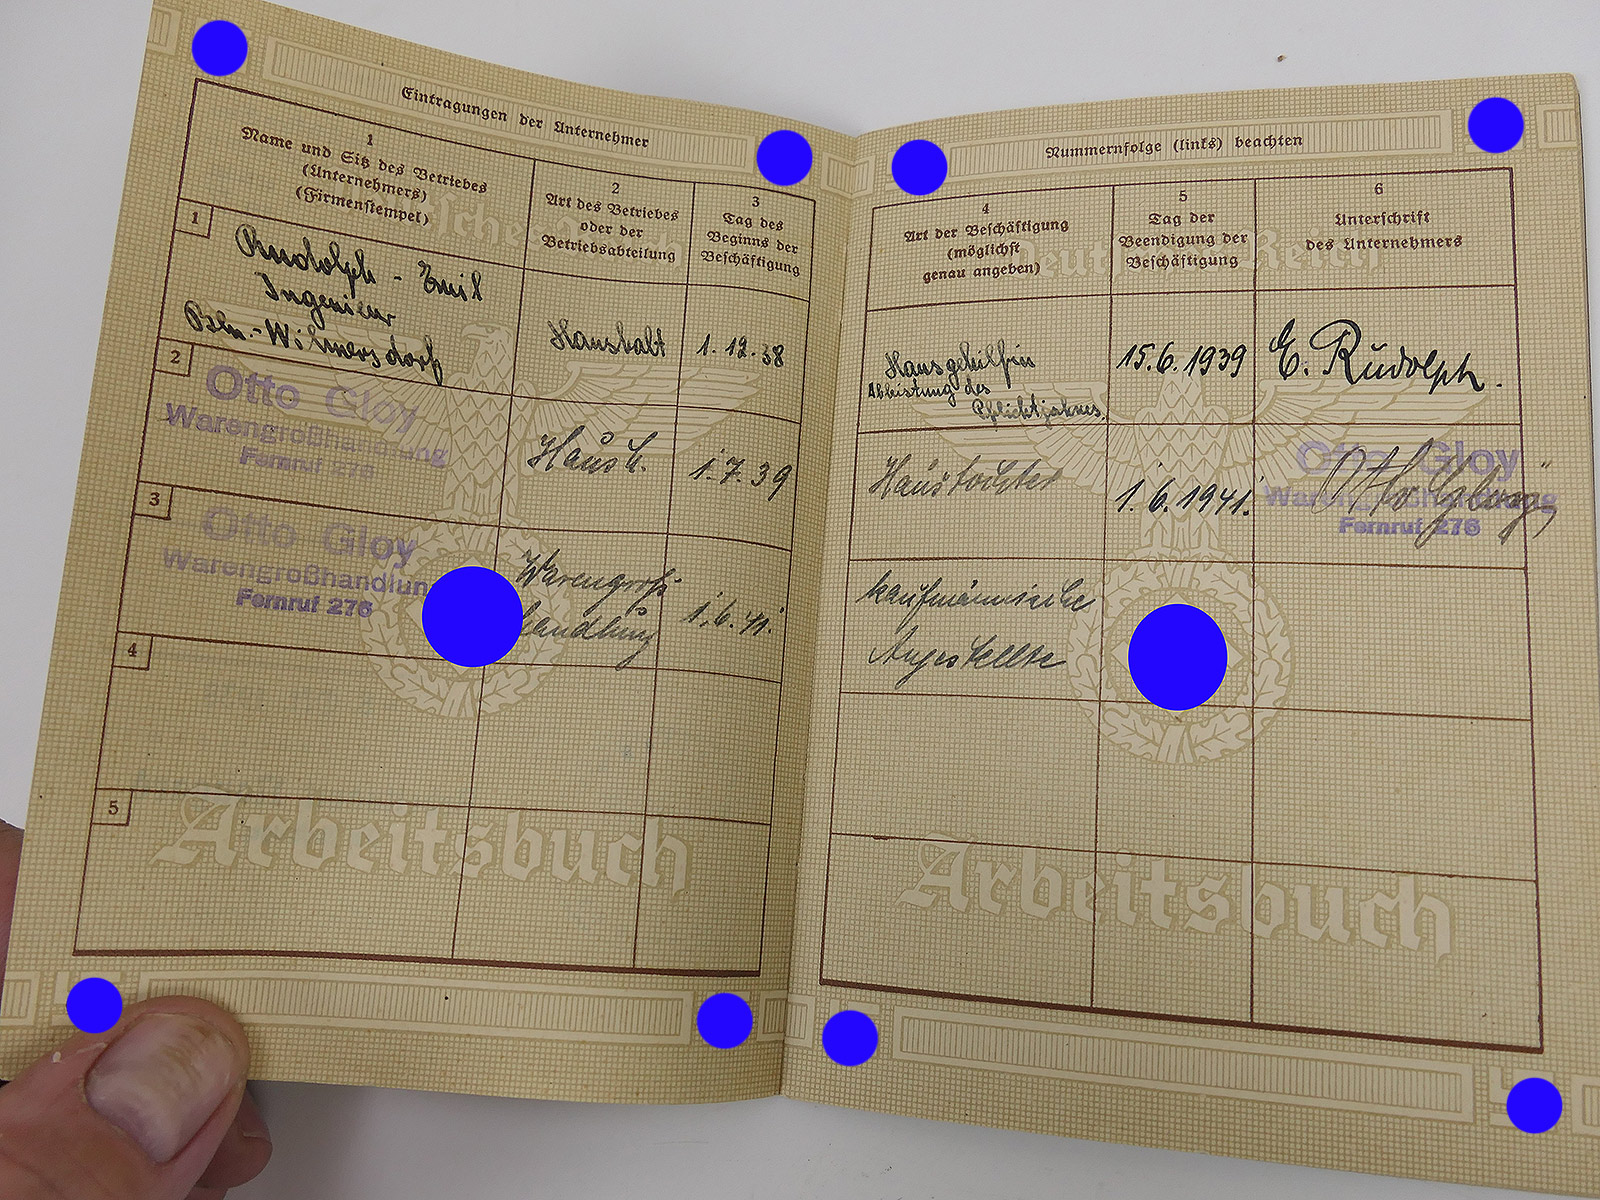 Eintragungen der Unternehmer
1
Name und Sitz des Betriebes
(Unternehmers)
(Firmenstempel)
2
Art des Betriebes
oder der
Betriebsabteilung
3
Tag des
Beginns der
Beschäftigung
1
Rudolph - Emil
Ingenieur
Bln.-Wilmersdorf
Haushalt
1.12.38
2
Otto Gloy
Warengroßhandlung
Fernruf 276
Haush.
1.7.39
3
Otto Gloy
Warengroßhandlun
Fernruf 276
Warengroß
handlung
1.6.41.
4
5
Arbeitsbuch
Nummernfolge (links) beachten
4
Art der Beschäftigung
(möglichst
genau angeben)
5
Tag der
Beendigung der
Beschäftigung
6
Unterschrift
des Unternehmers
Deutsches Reich
Hausgehilfin
Ableistung des
Pflichtjahres.
15.6.1939
E. Rudolph.
Haustochter
1.6.1941.
Otto Gloy
Warengroßhandlung
Fernruf 276
Otto Gloy
kaufmännische
Angestellte
Arbeitsbuch